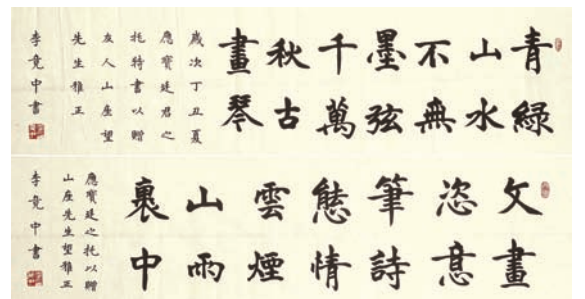 青山不墨千秋畫
綠水無弦萬古琴
歲次丁丑夏
應寶廷君之
托特書以贈
友人山座望
先生雅正
李竟中書
文恣筆態雲山裏
畫意詩情煙雨中
應寶廷之托以贈
山座先生望雅正
李竟中書